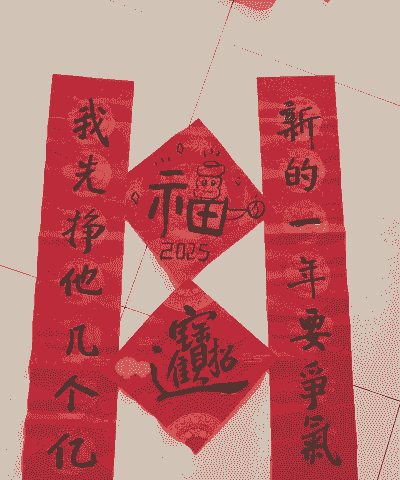 新的一年要爭氣
我先挣他几个亿
福
2025
招財進寶